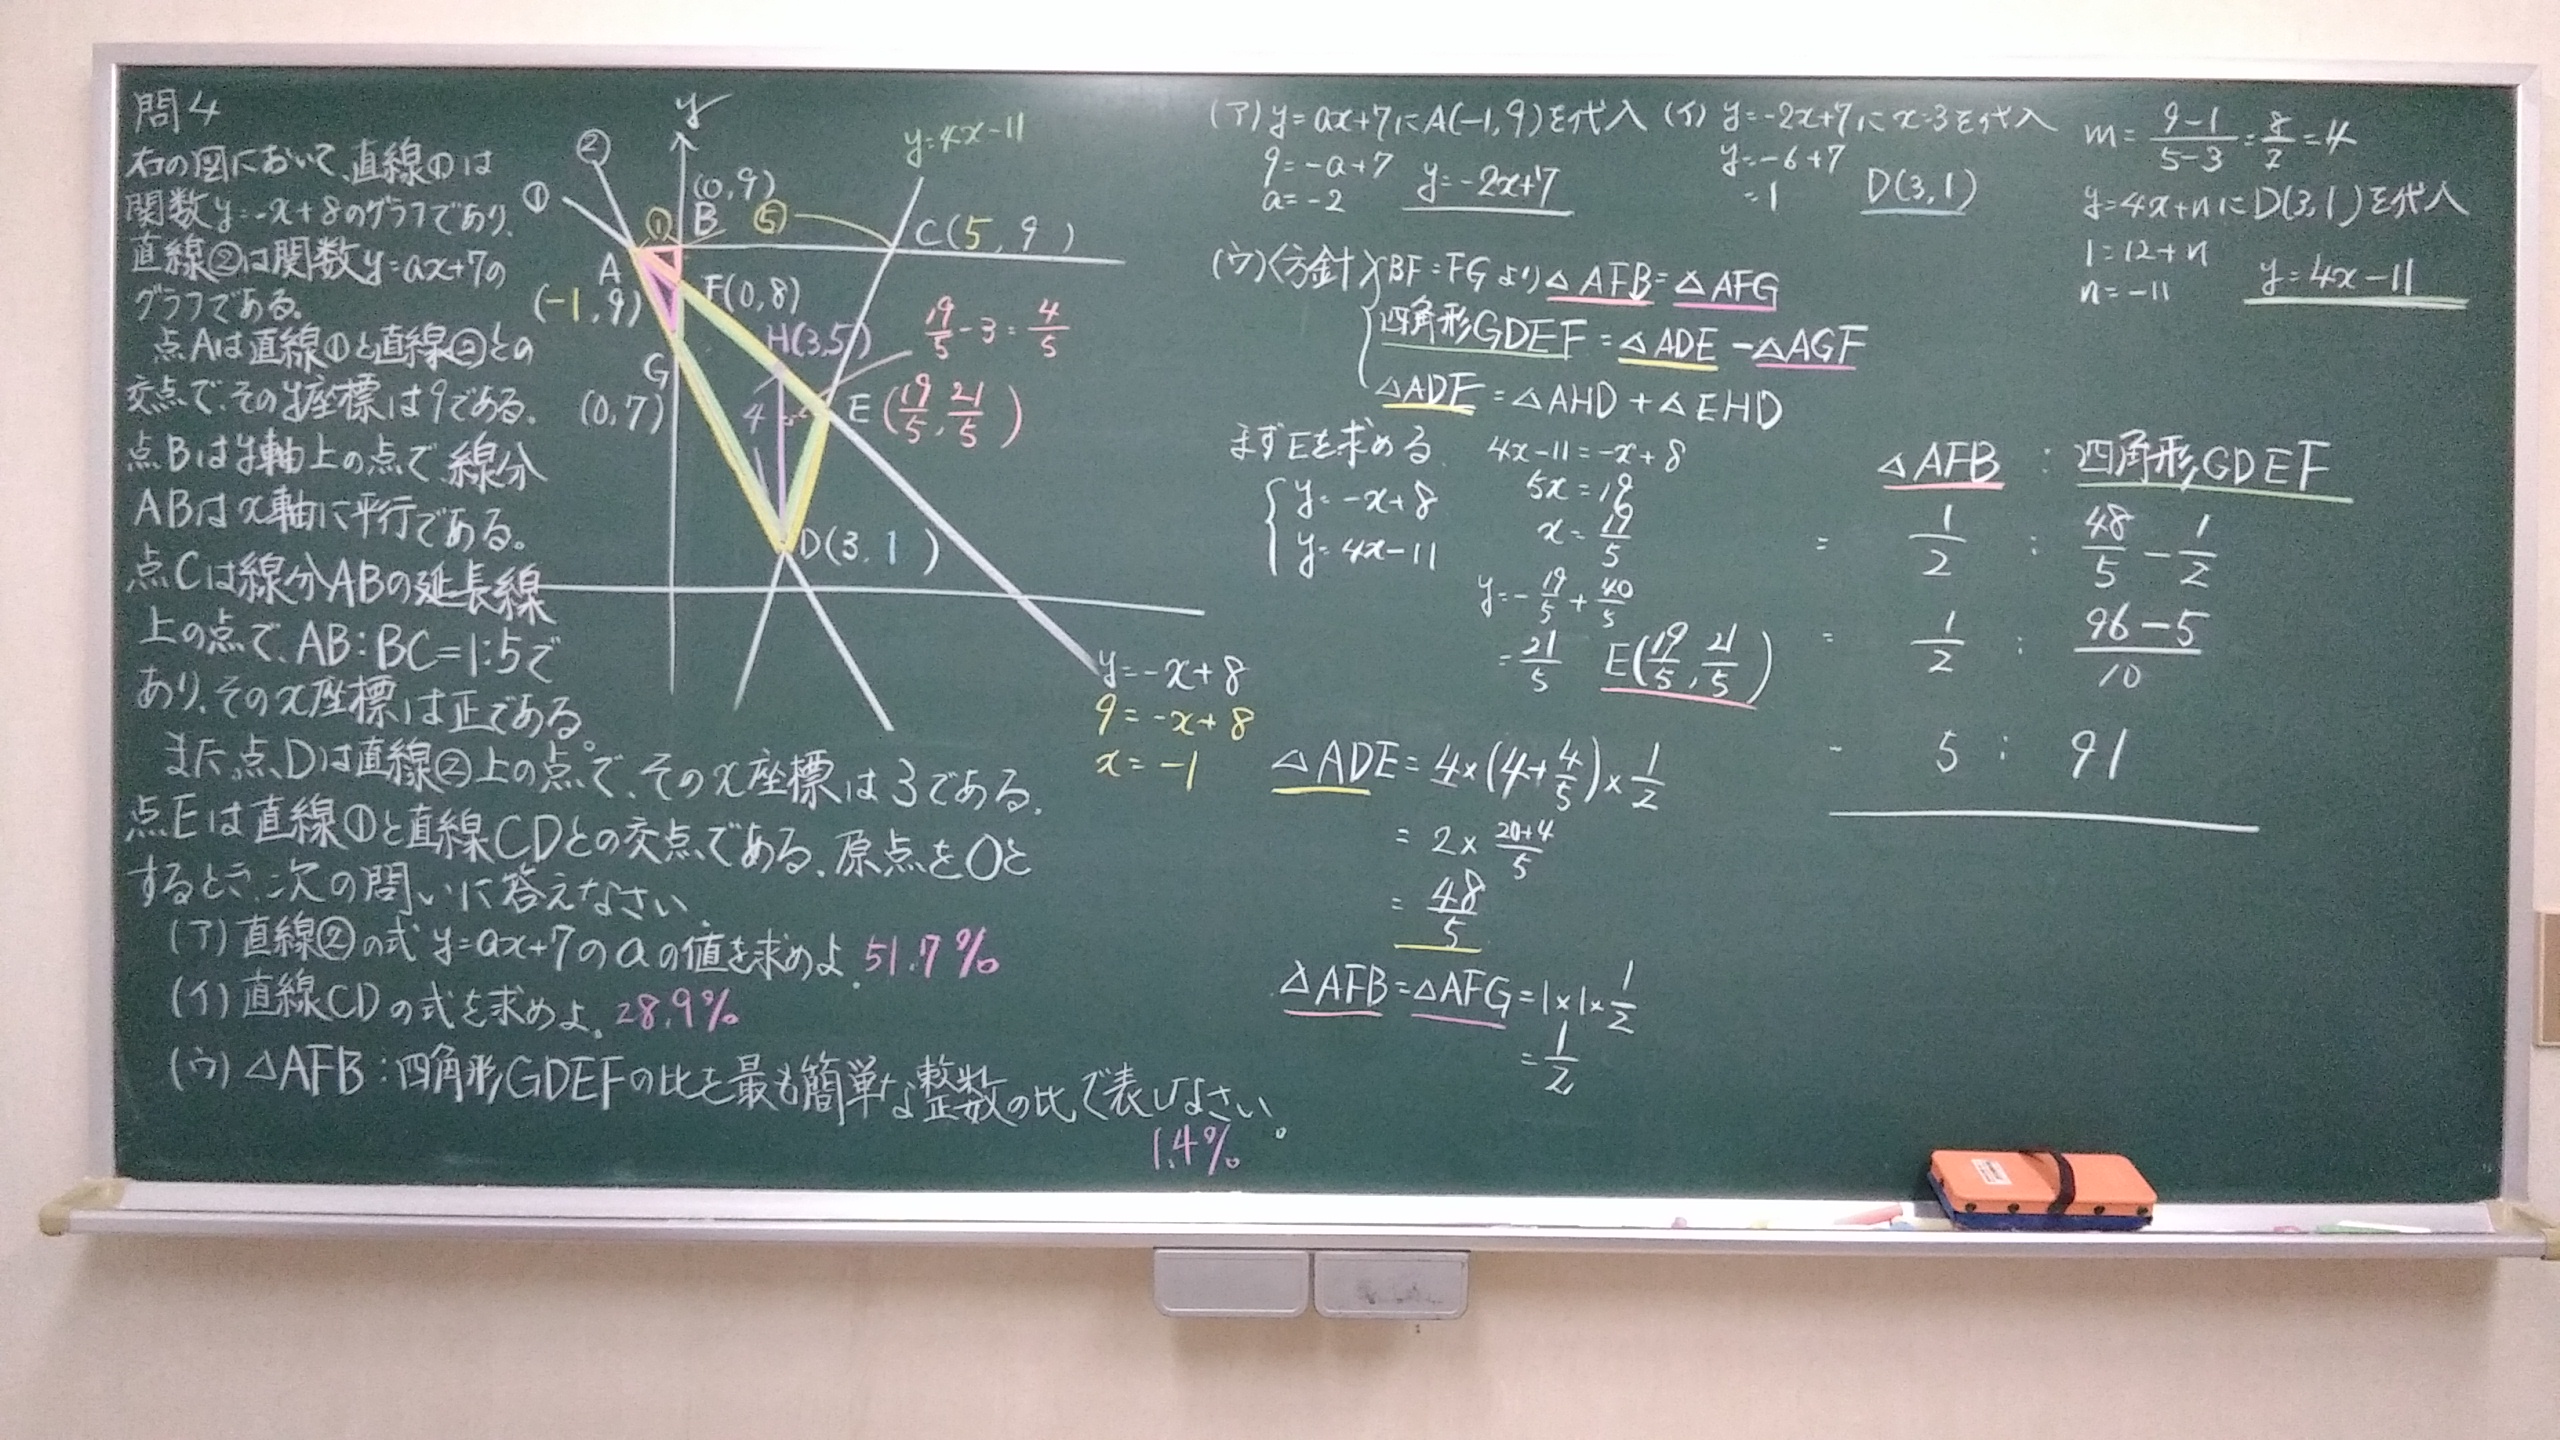 問4
右の図において、直線①は
関数y=-x+8のグラフであり、
直線②は関数y=ax+7の
グラフである。
点Aは直線①と直線②との
交点で、そのy座標は9である。
点Bはy軸上の点で、線分
ABはx軸に平行である。
点Cは線分ABの延長線
上の点で、AB:BC=1:5で
あり、そのx座標は正である。
また、点Dは直線②上の点で、そのx座標は3である。
点Eは直線①と直線CDとの交点である。原点をOと
するとき、次の問いに答えなさい。
(ア) 直線②の式 y=ax+7のaの値を求めよ。51.7%
(イ) 直線CDの式を求めよ。28.9%
(ウ) △AFB:四角形GDEFの比を最も簡単な整数の比で表しなさい。
1.4%
y
②
①
y=4x-11
(0,9)
① B ⑤
C(5,9)
A
(-1,9)
F(0,8)
H(3,5)
19/5-3=4/5
G
(0,7)
4
E(19/5,21/5)
D(3,1)
y=-x+8
9=-x+8
x=-1
(ア) y=ax+7にA(-1,9)を代入
9=-a+7
a=-2
y=-2x+7
(イ) y=-2x+7にx=3を代入
y=-6+7
=1
D(3,1)
m=9-1/5-3=8/2=4
y=4x+nにD(3,1)を代入
1=12+n
n=-11
y=4x-11
(ウ)〈方針〉BF=FGより△AFB=△AFG
四角形GDEF=△ADE-△AGF
△ADE=△AHD+△EHD
まずEを求める
y=-x+8
y=4x-11
4x-11=-x+8
5x=19
x=19/5
y=-19/5+40/5
=21/5 E(19/5,21/5)
△ADE=4×(4+4/5)×1/2
=2×20+4/5
=48/5
△AFB=△AFG=1×1×1/2
=1/2
△AFB:四角形GDEF
=1/2:48/5-1/2
=1/2:96-5/10
=5:91